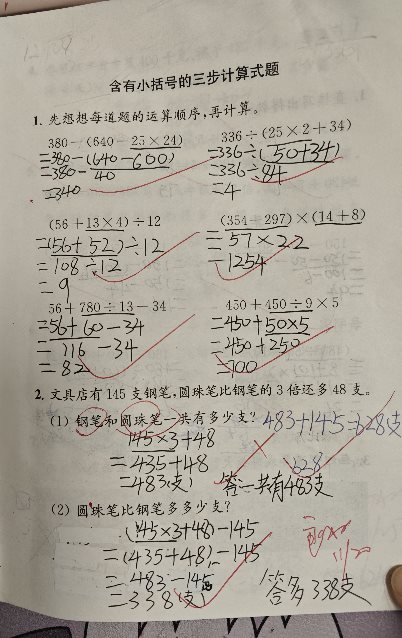 含有小括号的三步计算式题
1. 先想想每道题的运算顺序,再计算。
380-(640-25×24) 336÷(25×2+34)
=380-(640-600) =336÷(50+34)
=380-40 =336÷84
=340 =4
(56+13×4)÷12 (354+297)×(14+8)
=(56+52)÷12 =57×22
=108÷12 =1254
=9
56+780÷13-34 450+450÷9×5
=56+60-34 =450+50×5
=116-34 =450+250
=82 =700
2. 文具店有145支钢笔,圆珠笔比钢笔的3倍还多48支。
(1) 钢笔和圆珠笔一共有多少支? 483+145=628支
145×3+48
=435+48 628
=483(支) 答一共有483支
(2) 圆珠笔比钢笔多多少支?
(145×3+48)-145
=(435+48)-145
=483-145
=338(支) 答多338支
11/20